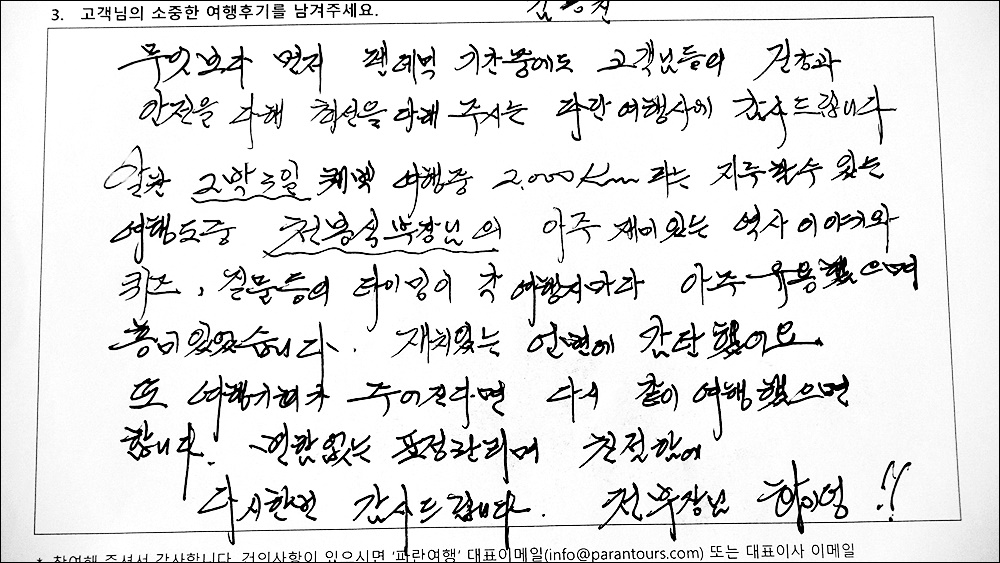 3. 고객님의 소중한 여행후기를 남겨주세요.
무엇보다 먼저 팬데믹 기간중에도 고객님들의 건강과
안전을 다해 최선을 다해 주시는 파란여행사에 감사드립니다
알찬 2박3일 여행중 2.000Km 라는 지루할수 있는
여행도중 전용식부장님의 아주 재미있는 역사이야기와
퀴즈, 질문등의 타이밍이 각 여행지마다 아주 유용했으며
흥미있었습니다. 재치있는 언변에 감탄했어요.
또 여행기회가 주어진다면 다시 같이 여행했으면
합니다. 변함없는 표정관리며 친절함에
다시한번 감사드립니다. 전부장님 화이팅!!
* 참여해 주셔서 감사합니다. 건의사항이 있으시면 '파란여행' 대표이메일(info@parantours.com) 또는 대표이사 이메일